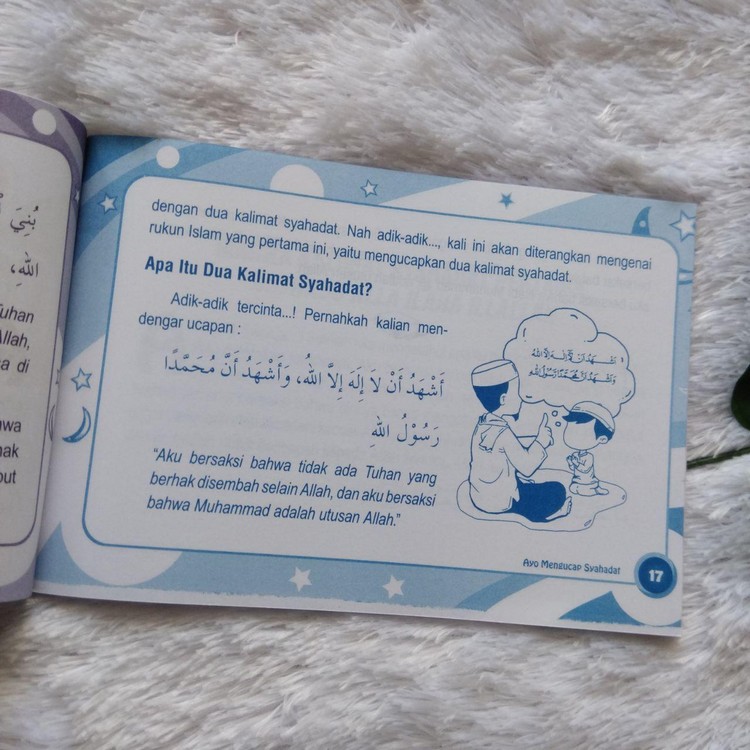 بُنِيَ
اللهِ،
Tuhan
Allah,
di
dengan dua kalimat syahadat. Nah adik-adik..., kali ini akan diterangkan mengenai
rukun Islam yang pertama ini, yaitu mengucapkan dua kalimat syahadat.
Apa Itu Dua Kalimat Syahadat?
Adik-adik tercinta...! Pernahkah kalian men-
dengar ucapan :
أَشْهَدُ أَنْ لاَ إِلَهَ إِلاَّ اللهُ، وَأَشْهَدُ أَنَّ مُحَمَّدًا
رَسُوْلُ اللهِ
“Aku bersaksi bahwa tidak ada Tuhan yang
berhak disembah selain Allah, dan aku bersaksi
bahwa Muhammad adalah utusan Allah.”
Ayo Mengucap Syahadat
17